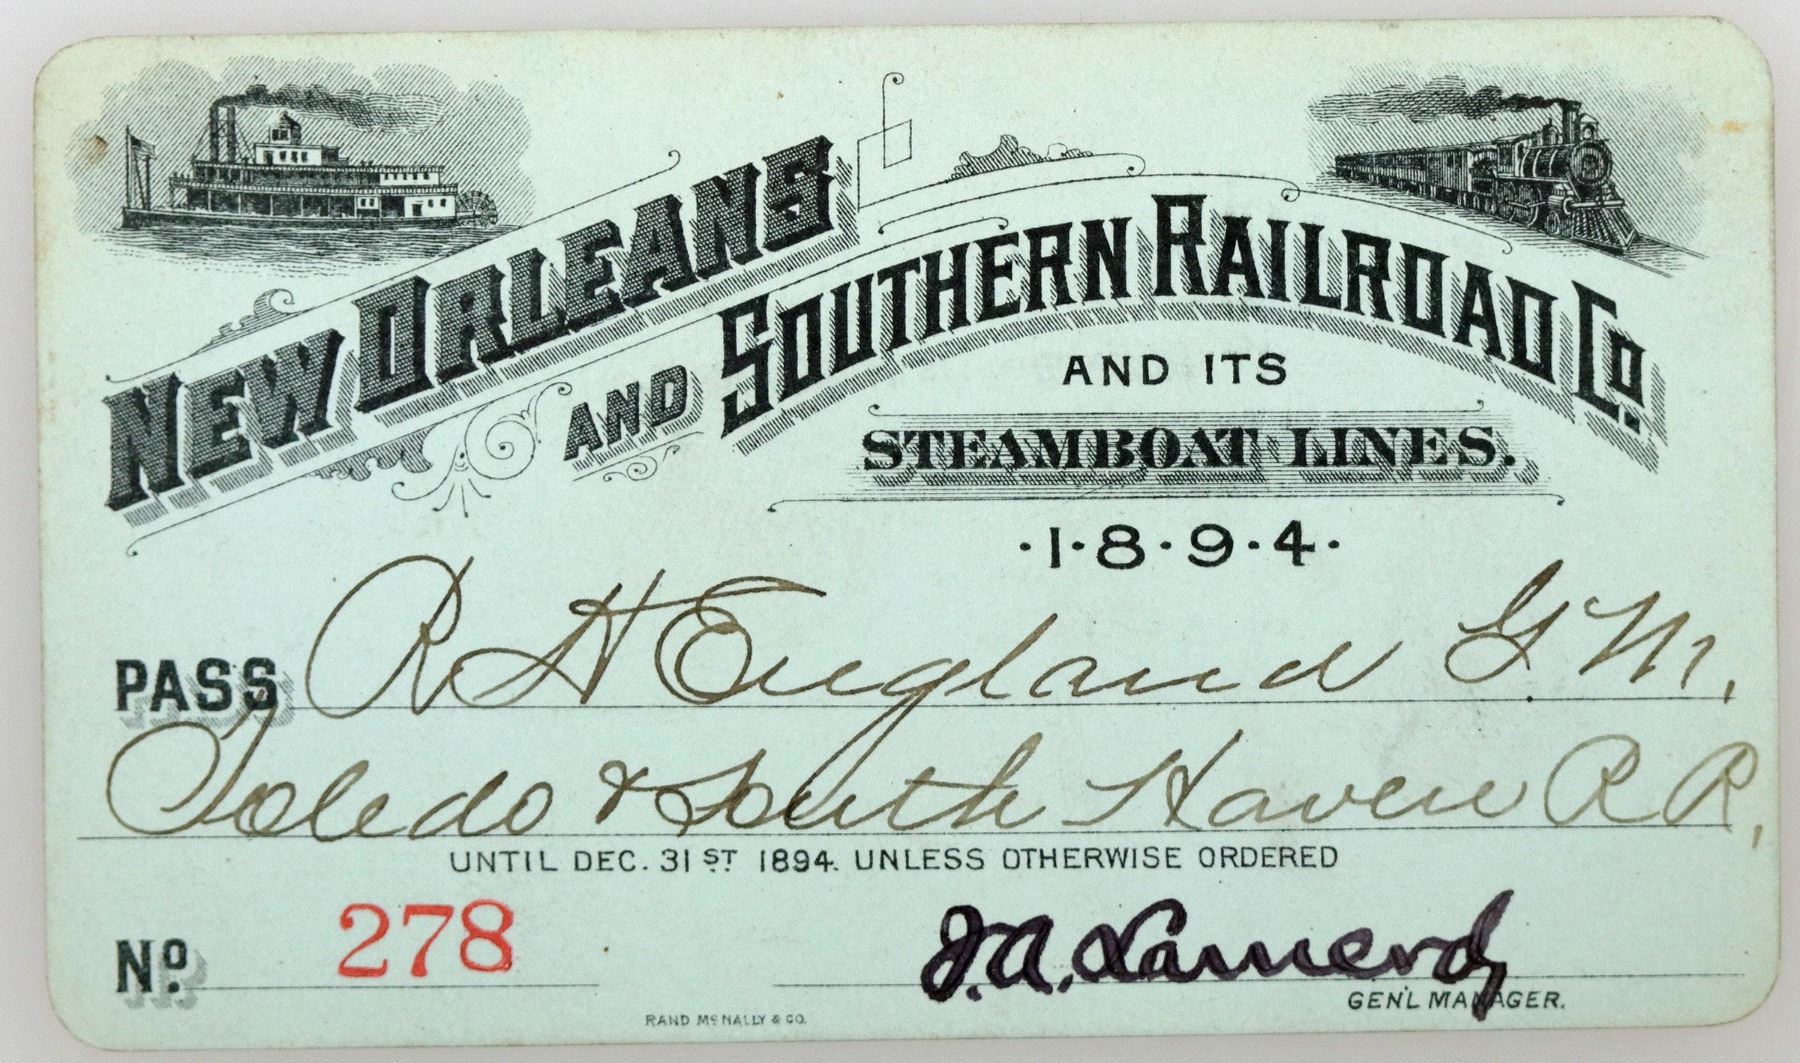 NEW ORLEANS
AND SOUTHERN RAILROAD Co.
AND ITS
STEAMBOAT LINES.
·1·8·9·4·
PASS R H England G.M.,
Toledo & South Haven R R,
UNTIL DEC. 31ST 1894. UNLESS OTHERWISE ORDERED
No. 278
J.A.
GEN'L MANAGER.
RAND McNALLY & CO.